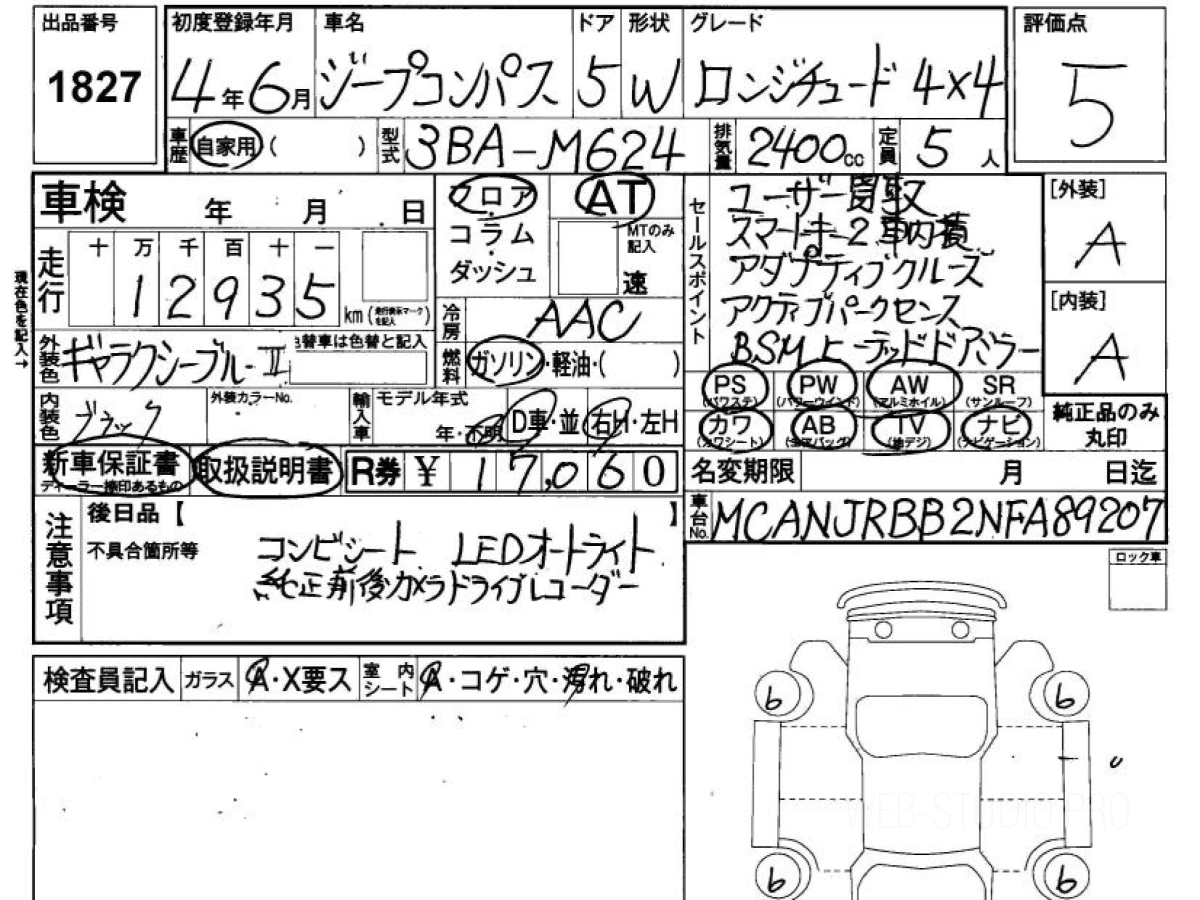 出品番号 初度登録年月 車名 ドア 形状 グレード 評価点
1827 4年6月 ジープコンパス 5 W ロンジチュード 4×4 5
車歴 自家用 ( ) 型式 3BA-M624 排気量 2400cc 定員 5人
車検 年 月 日
フロア AT
コラム
ダッシュ
MTのみ記入
速
セールスポイント
ユーザー買取
スマートキー2 車内積
アダプティブクルーズ
アクティブパークセンス
BSM ヒーテッドドアミラー
[外装]
A
[内装]
A
現在色を記入→
走行 十 万 千 百 十 一
12935 km (走行表示マークを記入)
冷房 AAC
外装色 ギャラクシーブルーII 色替車は色替と記入
燃料 ガソリン・軽油・( )
PS (パワステ) PW (パワーウインド) AW (アルミホイル) SR (サンルーフ)
カワ (カワシート) AB (エアバッグ) TV (地デジ) ナビ (ナビゲーション)
純正品のみ
丸印
内装色 ブラック 外装カラーNo. 輸入車 モデル年式 年・不明 D車・並 右H・左H
新車保証書 ディーラー捺印あるもの 取扱説明書 R券 ¥ 17,060
名変期限 月 日迄
車台No. MCANJRBB2NFA89207
注意事項
後日品【 】
不具合箇所等
コンビシート LEDオートライト
純正前後カメラドライブレコーダー
ロック車
検査員記入 ガラス A・X要ス 室内シート A・コゲ・穴・汚れ・破れ
6 6
WEB-STUDIO PRO
6 6